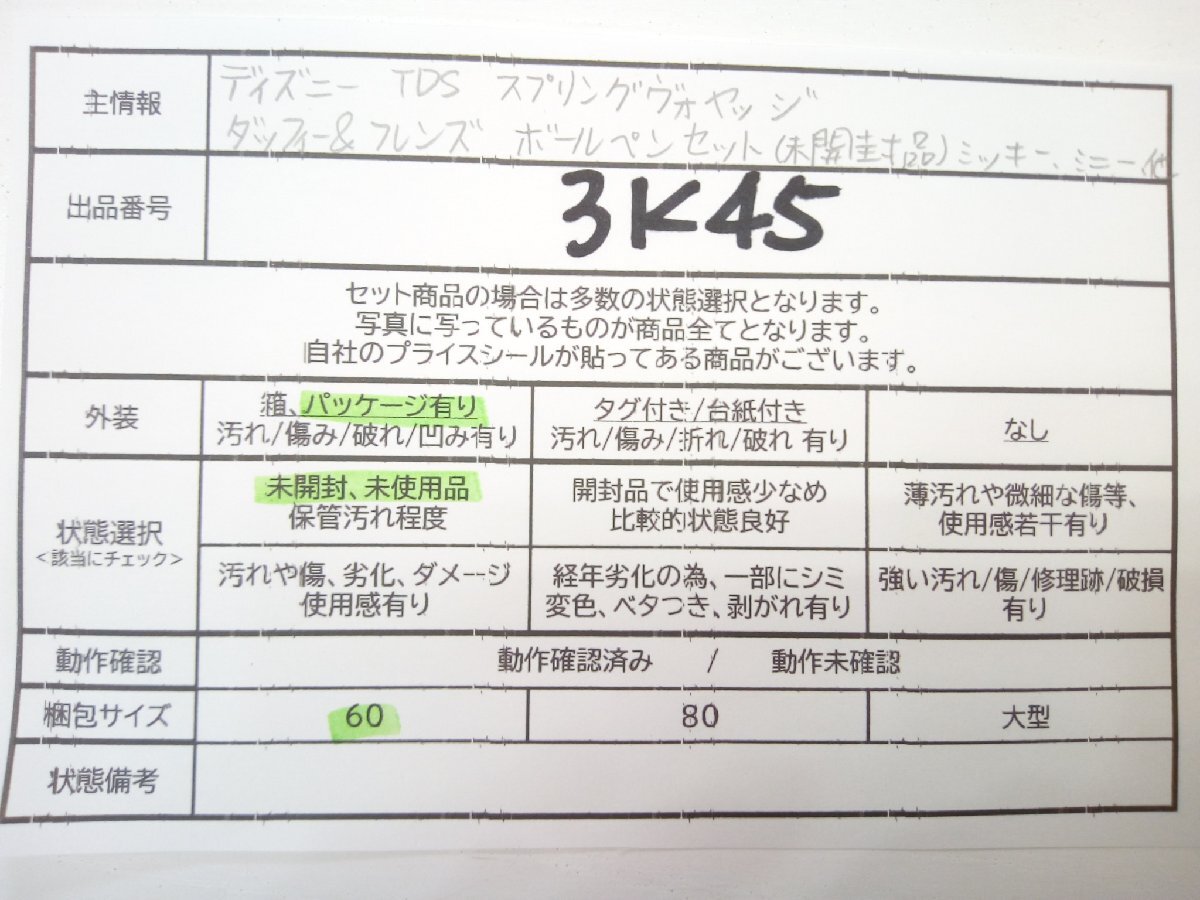 主情報
ディズニー TDS スプリングヴォヤッジ
ダッフィー&フレンズ ボールペンセット(未開封品)ミッキー、ミニー他
出品番号
3K45
セット商品の場合は多数の状態選択となります。
写真に写っているものが商品全てとなります。
自社のプライスシールが貼ってある商品がございます。
外装
箱、パッケージ有り
汚れ/傷み/破れ/凹み有り
タグ付き/台紙付き
汚れ/傷み/折れ/破れ 有り
なし
状態選択
<該当にチェック>
未開封、未使用品
保管汚れ程度
開封品で使用感少なめ
比較的状態良好
薄汚れや微細な傷等、
使用感若干有り
汚れや傷、劣化、ダメージ
使用感有り
経年劣化の為、一部にシミ
変色、ベタつき、剥がれ有り
強い汚れ/傷/修理跡/破損
有り
動作確認
動作確認済み / 動作未確認
梱包サイズ
60
80
大型
状態備考